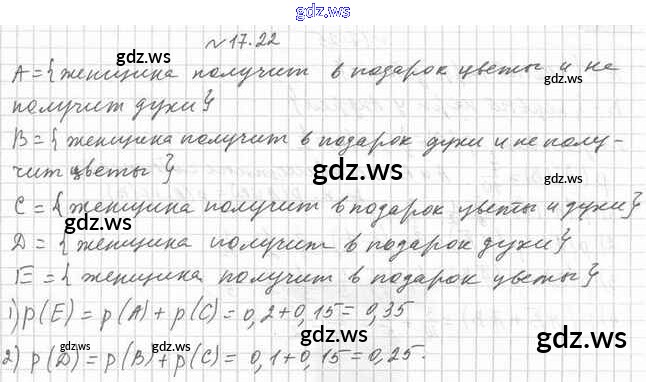 gdz.ws
№17.22
A={женщина получит в подарок цветы и не
получит духи}
B={женщина получит в подарок духи и не полу-
чит цветы}
C={женщина получит в подарок цветы и духи}
D={женщина получит в подарок духи}
E={женщина получит в подарок цветы}
1) p(E)=p(A)+p(C)=0,2+0,15=0,35
2) p(D)=p(B)+p(C)=0,1+0,15=0,25.
gdz.ws
gdz.ws
gdz.ws
gdz.ws
gdz.ws
gdz.ws
gdz.ws
gdz.ws
gdz.ws
gdz.ws